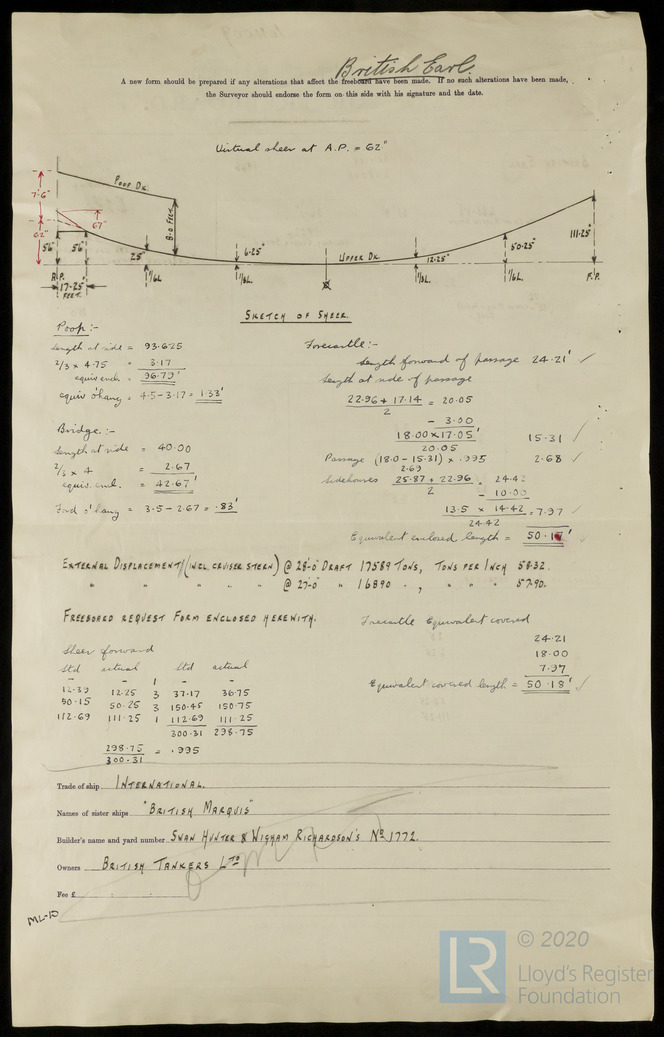 British Earl.
A new form should be prepared if any alterations that affect the freeboard have been made. If no such alterations have been made,
the Surveyor should endorse the form on this side with his signature and the date.
Virtual sheer at A.P. = 62"
Poop Dk.
7'-6"
67"
62"
56"
56"
8'-0 Feet
25"
6.25"
Upper Dk
12.25"
50.25"
111.25"
A.P.
17.25'
FEET.
1/6L
1/3L
1/3L
1/6L
F.P.
SKETCH OF SHEER.
Poop:-
Length at side = 93.625
2/3 x 4.75 = 3.17
equiv encl. = 96.79'
equiv o'hang = 4.5 - 3.17 = 1.33'
Bridge:-
Length at side = 40.00
2/3 x 4 = 2.67
equiv. encl. = 42.67'
Ford o'hang = 3.5 - 2.67 = .83'
Forecastle:-
Length forward of passage 24.21' ✓
Length at side of passage
22.96 + 17.14 = 20.05
2
- 3.00
18.00 x 17.05' 15.31 ✓
20.05
Passage (18.0 - 15.31) x .995 2.68 ✓
2.69
Sidehouses 25.87 + 22.96 = 24.42
2 - 10.00
13.5 x 14.42 = 7.97 ✓
24.42
Equivalent enclosed length = 50.17' ✓
EXTERNAL DISPLACEMENT (INCL. CRUISER STERN) @ 28'-0" DRAFT 17589 TONS, TONS PER INCH 58.32.
" " " " " @ 27'-0 " 16890 " , " " " 57.90.
FREEBOARD REQUEST FORM ENCLOSED HEREWITH.
Forecastle Equivalent covered
24.21
18.00
7.97
Equivalent covered length = 50.18' ✓
Sheer forward
Std actual Std actual
- - 1 - -
12.39 12.25 3 37.17 36.75
50.15 50.25 3 150.45 150.75
112.69 111.25 1 112.69 111.25
300.31 298.75
298.75 = .995
300.31
Trade of ship INTERNATIONAL.
Names of sister ships "BRITISH MARQUIS"
Builder's name and yard number SWAN HUNTER & WIGHAM RICHARDSON'S No 1772.
Owners BRITISH TANKERS LTD
Fee £
ML-10
LR
© 2020
Lloyd's Register
Foundation